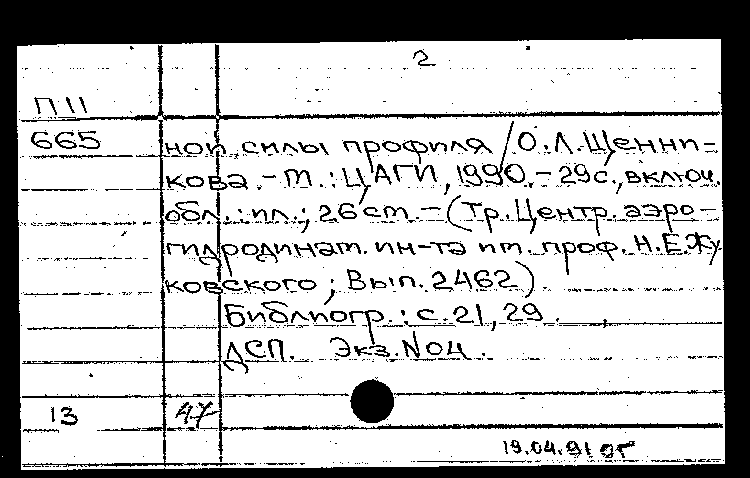 2
П 11
665 ной силы профиля / О.Л.Щенни-
кова. - М. : ЦАГИ, 1990. - 29 с., включ.
обл. : ил.; 26 см. - (Тр. Центр. аэро-
гидродинам. ин-та им. проф. Н.Е.Жу
ковского; Вып. 2462)
Библиогр.: с. 21, 29.
ДСП. Экз. N04.
13 47
19.04.91